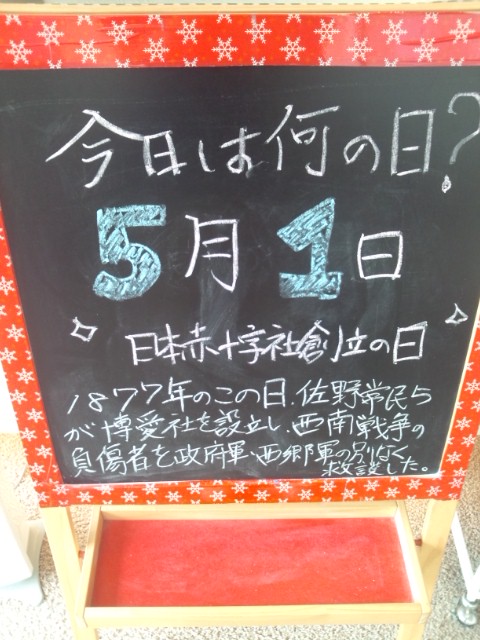 今日は何の日?
5月1日
日本赤十字社創立の日
1877年のこの日、佐野常民ら
が博愛社を設立し、西南戦争の
負傷者を政府軍・西郷軍の別なく
救護した。